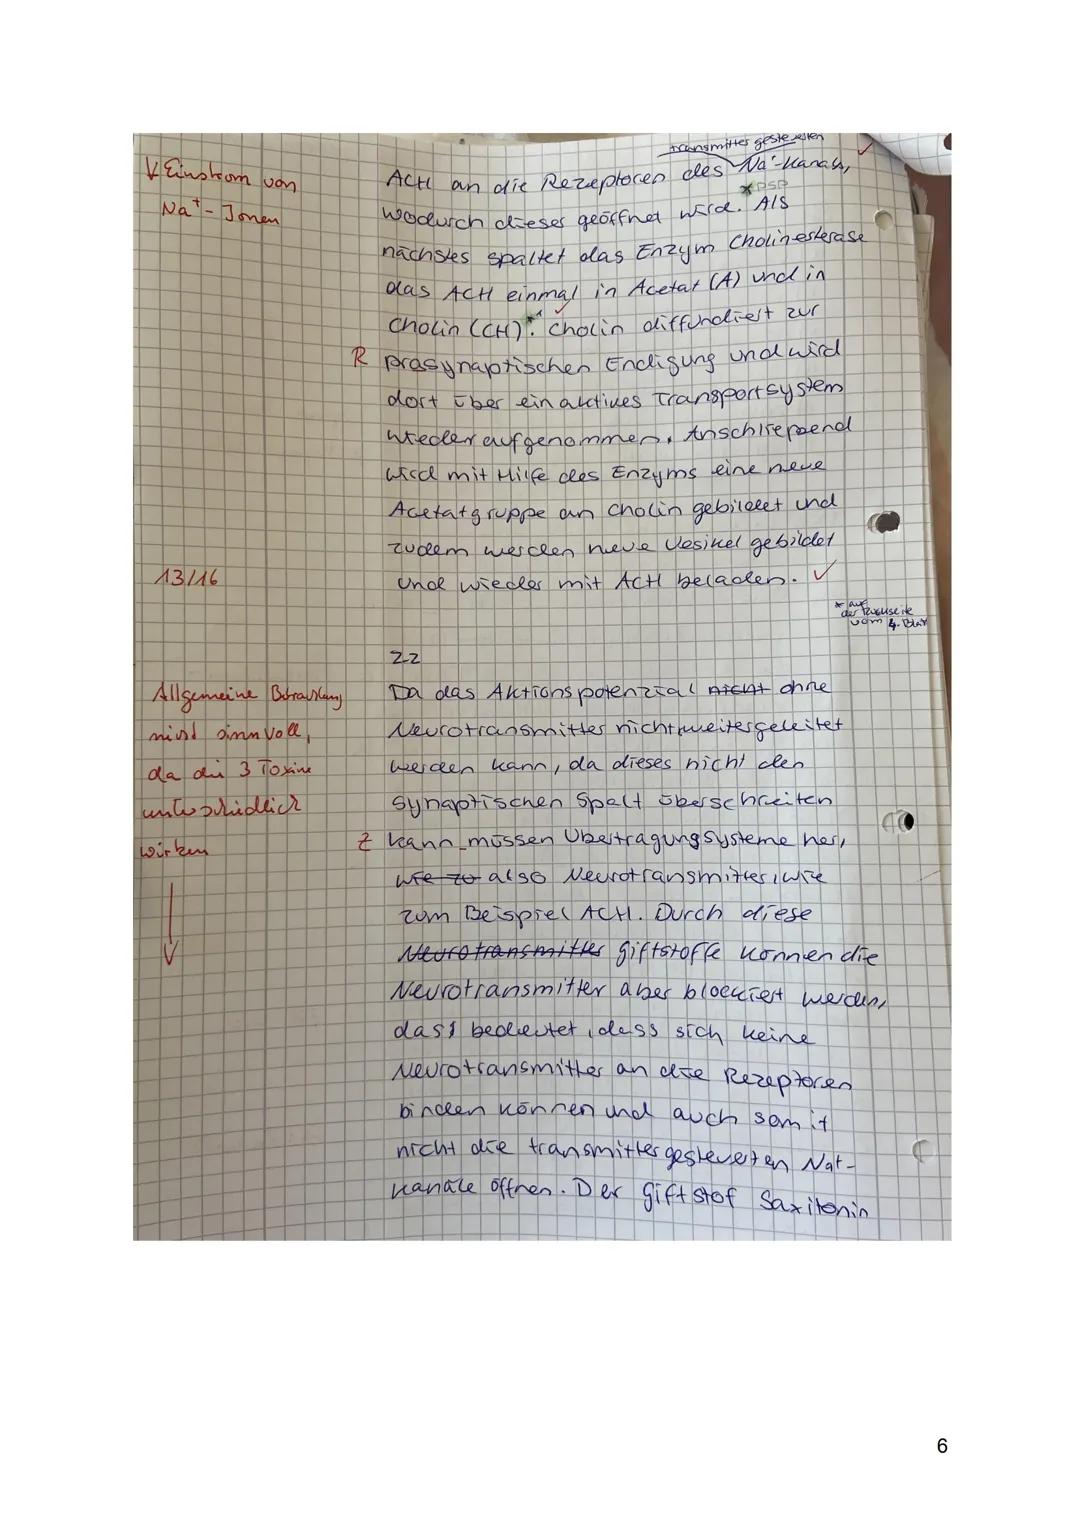 transmitter gesteuerten
V Einstrom von
Na⁺-Ionen
ACH an die Rezeptoren des Na⁺-Kanals,
* PSP
wodurch dieses geöffnet wird. Als
nächstes spaltet das Enzym Cholinesterase
das ACH einmal in Acetat (A) und in
Cholin (CH).* Cholin diffundiert zur
R präsynaptischen Endigung und wird
dort über ein aktives Transportsystem
wieder aufgenommen. Anschließend
wird mit Hilfe des Enzyms eine neue
Acetatgruppe an Cholin gebildet und
zudem werden neue Vesikel gebildet
13/16
und wieder mit ACH beladen. ✓
* auf
der Rückseite
vom 4. Blatt
2.2
Allgemeine Betrachtung
nicht sinnvoll,
da die 3 Toxine
unterschiedlich
wirken
Da das Aktionspotenzial nicht ohne
Neurotransmitter nicht weitergeleitet
werden kann, da dieses nicht den
synaptischen Spalt überschreiten
Z kann müssen Übertragungsysteme her,
wie zu also Neurotransmitter, wie
zum Beispiel ACH. Durch diese
Neurotransmitter Giftstoffe können die
Neurotransmitter aber blockiert werden,
dass bedeutet, dass sich keine
Neurotransmitter an die Rezeptoren
binden können und auch somit
nicht die transmittergesteuerten Na+-
kanäle öffnen. Der Giftstof Saxitonin
6